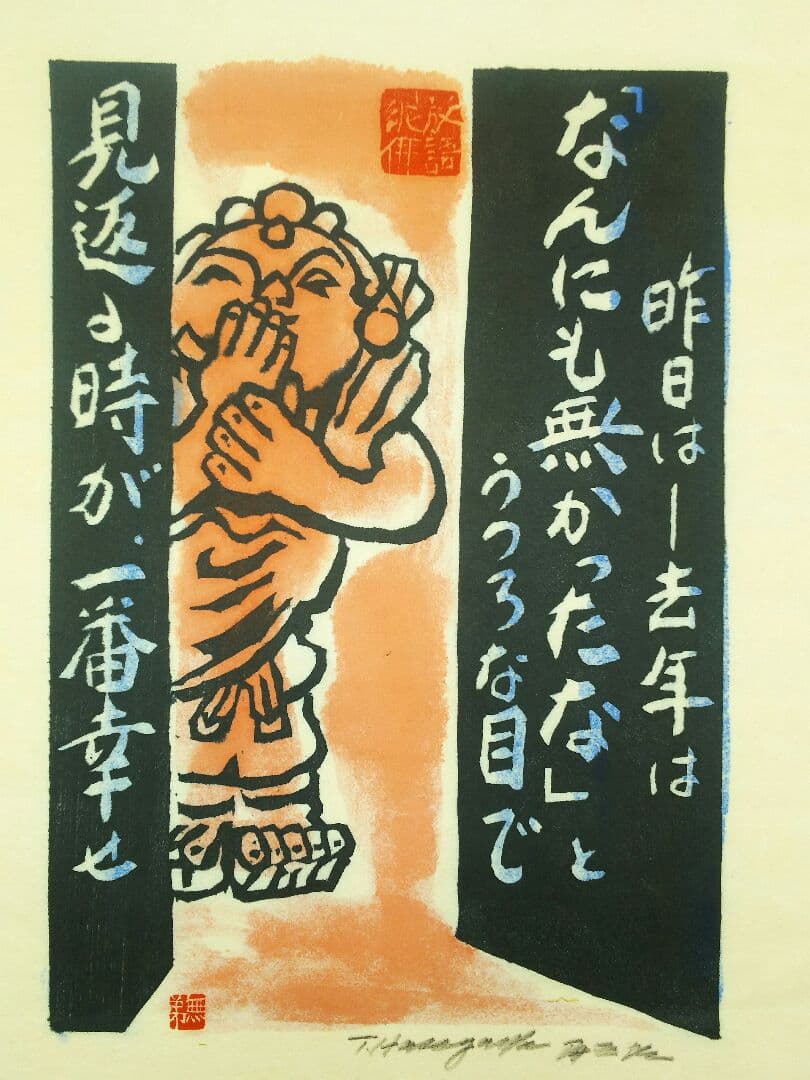 昨日は―去年は
「なんにも無かったな」と
うつろな目で
見返る時が、一番幸せ
T. Hasegawa